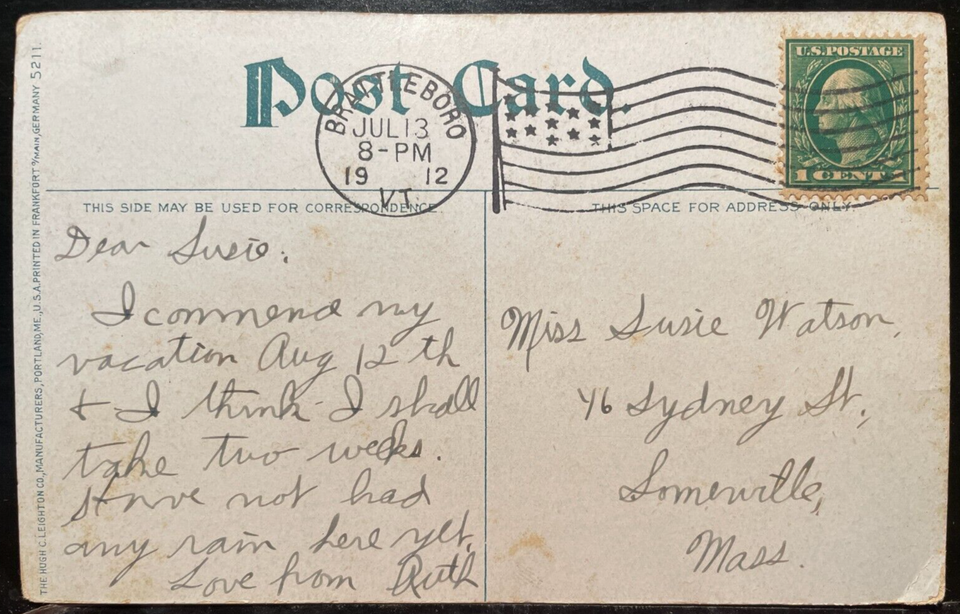 Post Card.
BRATTLEBORO
JUL 13
8-PM
19 12
VT.
U.S. POSTAGE
1 CENT 1
THIS SIDE MAY BE USED FOR CORRESPONDENCE.
THIS SPACE FOR ADDRESS ONLY.
Dear Susie:
I commend my
vacation Aug 12 th
+ I think I shall
take two weeks.
Have not had
any rain here yet.
Love from Ruth
Miss Susie Watson,
46 Sydney St.,
Somerville,
Mass.
THE HUGH C. LEIGHTON CO., MANUFACTURERS, PORTLAND, ME., U.S.A. PRINTED IN FRANKFORT o/MAIN, GERMANY 5211